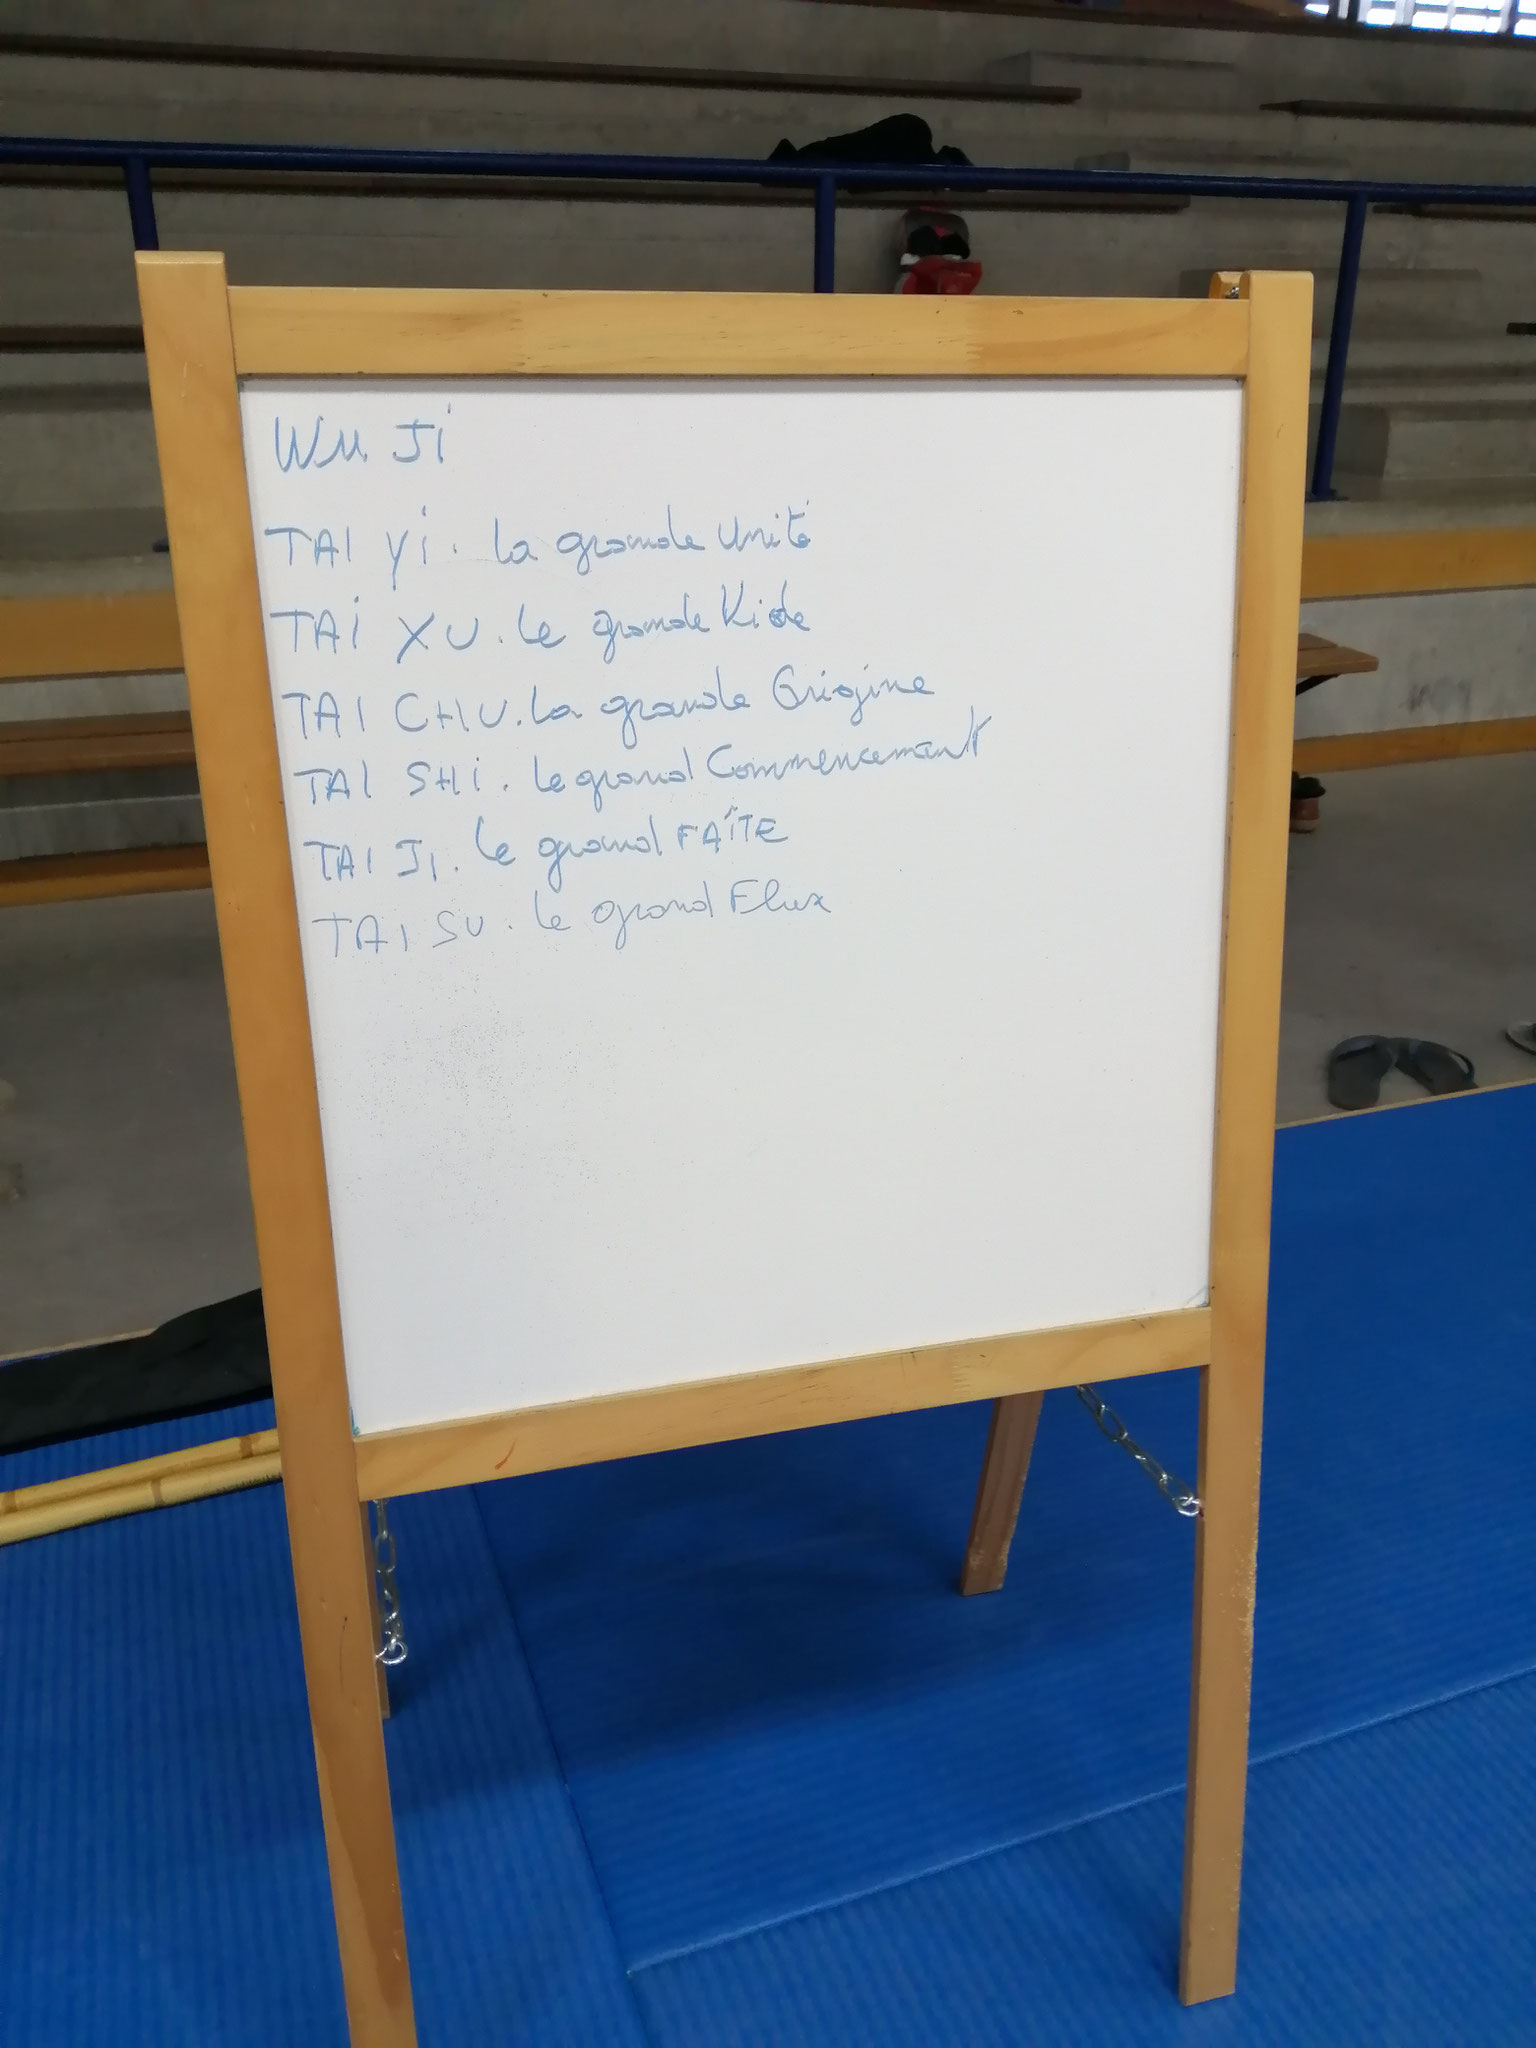 WU Ji
TAI Yi. la grande Unité
TAi XU. le grande Vide
TAI CHU. la grande Origine
TAI SHi. le grand Commencement
TAI Ji. le grand FAÎTE
TAI SU. le grand Flux